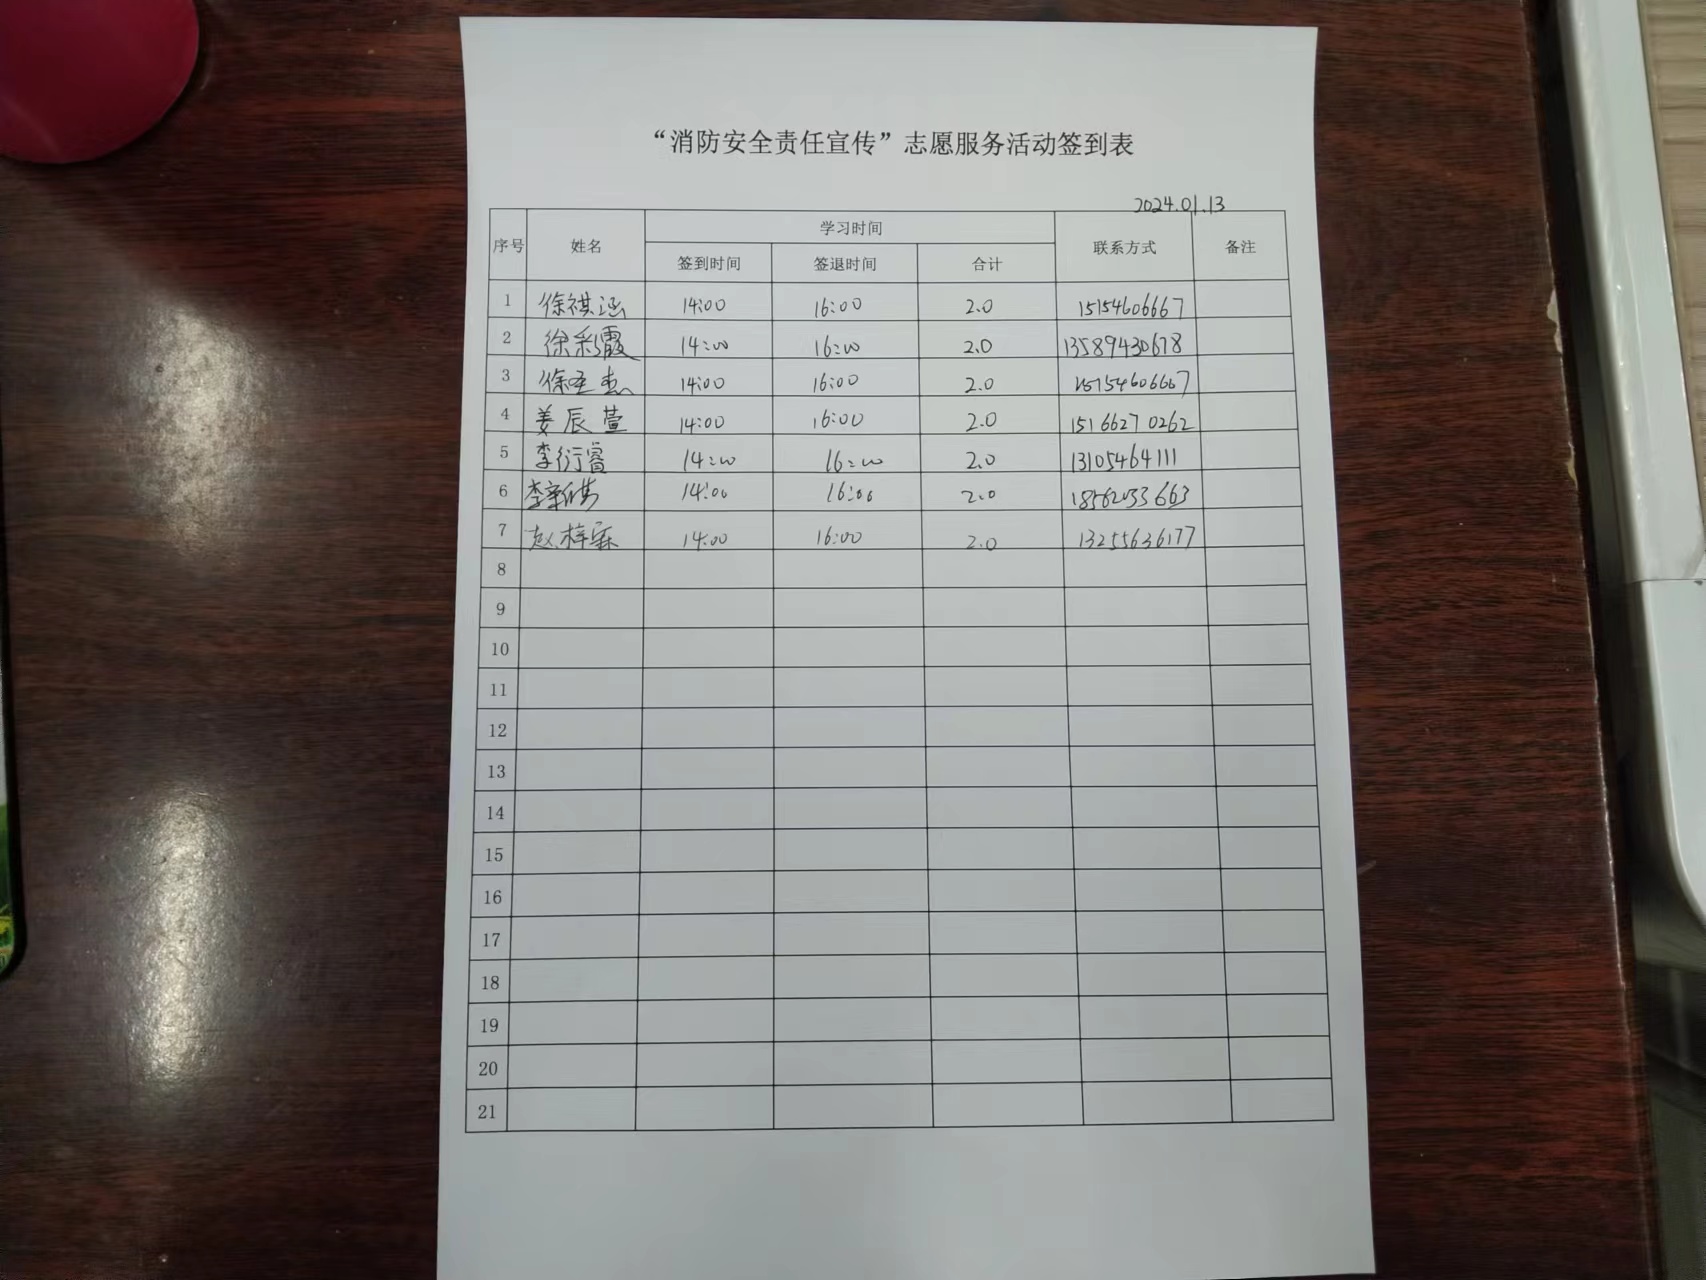 “消防安全责任宣传”志愿服务活动签到表
2024.01.13
序号 姓名 学习时间 联系方式 备注
签到时间 签退时间 合计
1 徐祺涵 14:00 16:00 2.0 15154606667
2 徐彩霞 14:00 16:00 2.0 13589430678
3 徐圣杰 14:00 16:00 2.0 15154606667
4 姜辰萱 14:00 16:00 2.0 15166270262
5 李衍睿 14:00 16:00 2.0 13105464111
6 14:00 16:00 2.0 18562033663
7 赵梓霖 14:00 16:00 2.0 13255636177
8
9
10
11
12
13
14
15
16
17
18
19
20
21